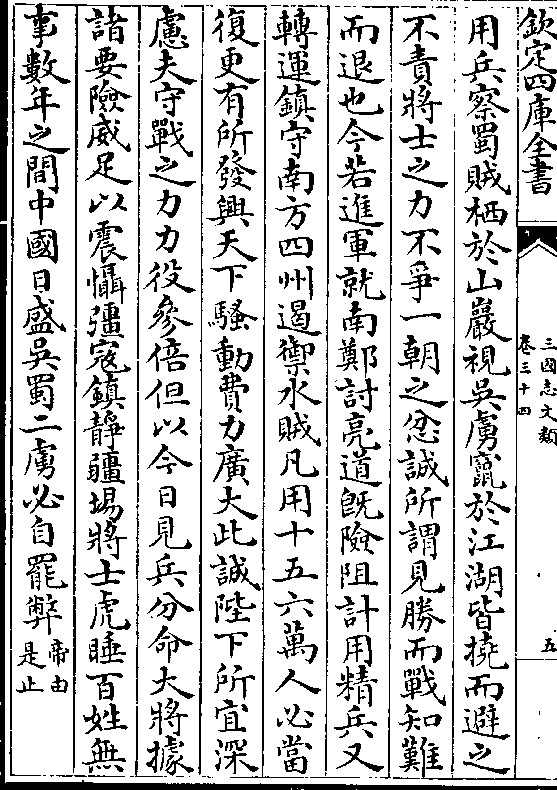 欽定四庫全書
三國志文類
卷三十四
五
用兵察蜀賊栖於山巖視吳虜竄於江湖皆撓而避之
不責將士之力不爭一朝之忿誠所謂見勝而戰知難
而退也今若進軍就南鄭討亮道旣險阻計用精兵又
轉運鎮守南方四州遏禦水賊凡用十五六萬人必當
復更有所發興天下騷動費力廣大此誠陛下所宜深
慮夫守戰之力力役參倍但以今日見兵分命大將據
諸要險威足以震懾彊寇鎮靜疆埸將士虎睡百姓無
事數年之間中國日盛吳蜀二虜必自罷弊帝由
是止